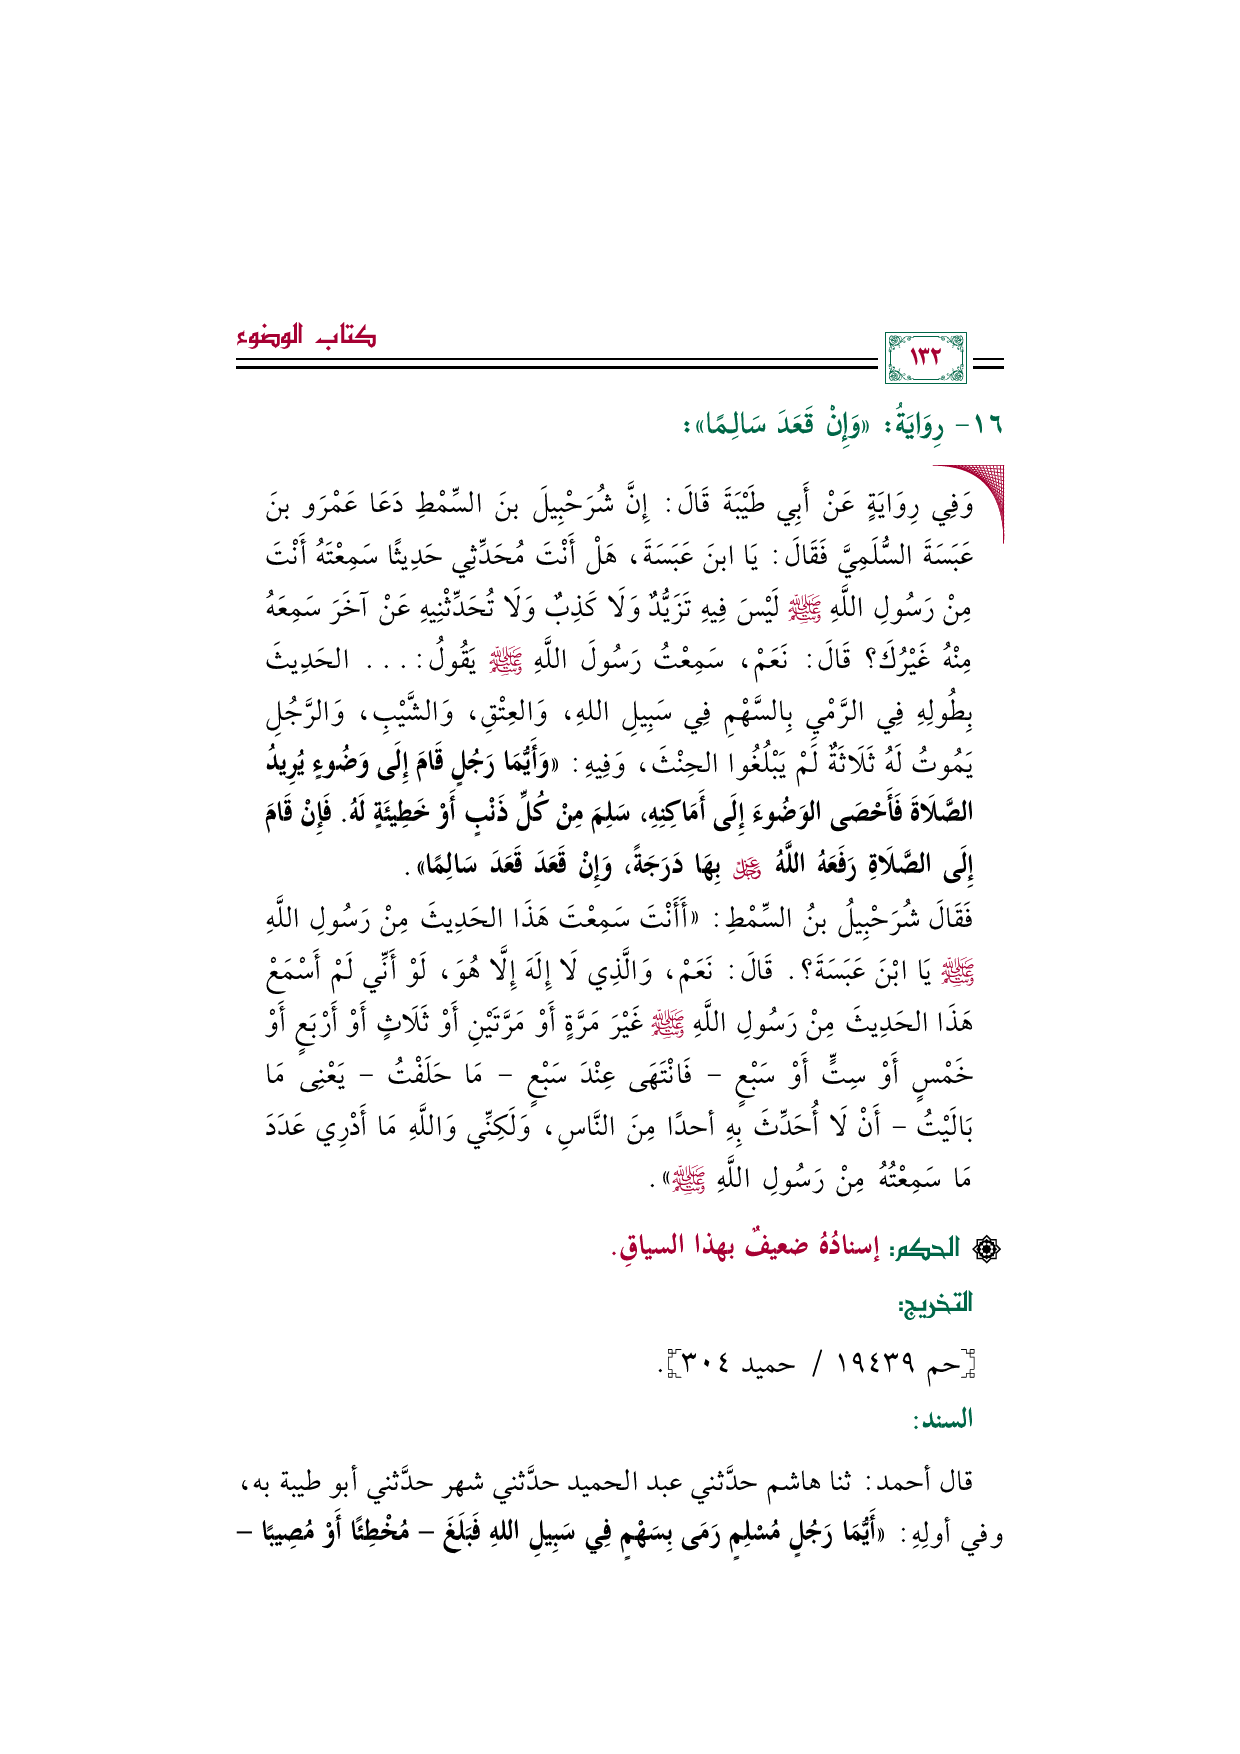 كتاب الوضوء
١٣٢
١٦- رِوَايَةُ: «وَإِنْ قَعَدَ سَالِمًا»:
وَفِي رِوَايَةٍ عَنْ أَبِي طَيْبَةَ قَالَ: إِنَّ شُرَحْبِيلَ بنَ السِّمْطِ دَعَا عَمْرَو بنَ
عَبَسَةَ السُّلَمِيَّ فَقَالَ: يَا ابنَ عَبَسَةَ، هَلْ أَنْتَ مُحَدِّثِي حَدِيثًا سَمِعْتَهُ أَنْتَ
مِنْ رَسُولِ اللَّهِ ﷺ لَيْسَ فِيهِ تَزَيُّدٌ وَلَا كَذِبٌ وَلَا تُحَدِّثْنِيهِ عَنْ آخَرَ سَمِعَهُ
مِنْهُ غَيْرُكَ؟ قَالَ: نَعَمْ، سَمِعْتُ رَسُولَ اللَّهِ ﷺ يَقُولُ: . . . الحَدِيثَ
بِطُولِهِ فِي الرَّمْيِ بِالسَّهْمِ فِي سَبِيلِ اللهِ، وَالعِتْقِ، وَالشَّيْبِ، وَالرَّجُلِ
يَمُوتُ لَهُ ثَلَاثَةٌ لَمْ يَبْلُغُوا الحِنْثَ، وَفِيهِ: «وَأَيُّمَا رَجُلٍ قَامَ إِلَى وَضُوءٍ يُرِيدُ
الصَّلَاةَ فَأَحْصَى الوَضُوءَ إِلَى أَمَاكِنِهِ، سَلِمَ مِنْ كُلِّ ذَنْبٍ أَوْ خَطِيئَةٍ لَهُ. فَإِنْ قَامَ
إِلَى الصَّلَاةِ رَفَعَهُ اللَّهُ عَزَّ وَجَلَّ بِهَا دَرَجَةً، وَإِنْ قَعَدَ قَعَدَ سَالِمًا».
فَقَالَ شُرَحْبِيلُ بنُ السِّمْطِ: «أَأَنْتَ سَمِعْتَ هَذَا الحَدِيثَ مِنْ رَسُولِ اللَّهِ
ﷺ يَا ابْنَ عَبَسَةَ؟. قَالَ: نَعَمْ، وَالَّذِي لَا إِلَهَ إِلَّا هُوَ، لَوْ أَنِّي لَمْ أَسْمَعْ
هَذَا الحَدِيثَ مِنْ رَسُولِ اللَّهِ ﷺ غَيْرَ مَرَّةٍ أَوْ مَرَّتَيْنِ أَوْ ثَلَاثٍ أَوْ أَرْبَعٍ أَوْ
خَمْسٍ أَوْ سِتٍّ أَوْ سَبْعٍ - فَانْتَهَى عِنْدَ سَبْعٍ - مَا حَلَفْتُ - يَعْنِى مَا
بَالَيْتُ - أَنْ لَا أُحَدِّثَ بِهِ أحدًا مِنَ النَّاسِ، وَلَكِنِّي وَاللَّهِ مَا أَدْرِي عَدَدَ
مَا سَمِعْتُهُ مِنْ رَسُولِ اللَّهِ ﷺ».
الحكم: إسنادُهُ ضعيفٌ بهذا السياقِ.
التخريج:
[حم ١٩٤٣٩ / حميد ٣٠٤].
السند:
قال أحمد: ثنا هاشم حدَّثني عبد الحميد حدَّثني شهر حدَّثني أبو طيبة به،
وفي أولِهِ: «أَيُّمَا رَجُلٍ مُسْلِمٍ رَمَى بِسَهْمٍ فِي سَبِيلِ اللهِ فَبَلَغَ - مُخْطِئًا أَوْ مُصِيبًا -